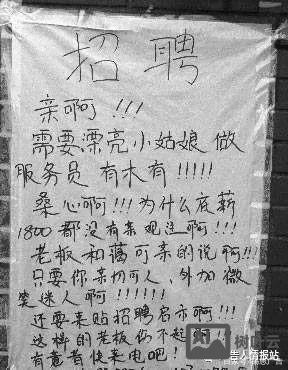 招聘
亲啊!!!
需要漂亮小姑娘 做
服务员 有木有!!!!!
桑心啊!!!为什么底薪
1800都没有来观注啊!!!
老板和蔼可亲的说啊!!!
只要你亲切可人、外加微
笑迷人啊!!!!!!
还要来贴招聘启示啊!!!
这样的老板伤不起啊
有意者快来电吧!
告人情报站